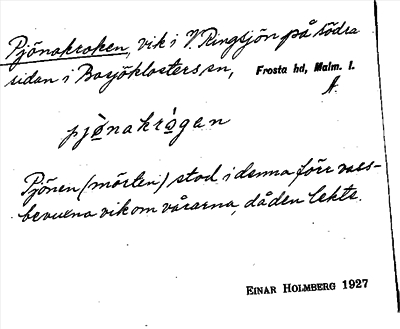 Pjönakroken, vik i V. Ringsjön på södra
sidan i Bosjöklosters sn, Frosta hd, Malm. l.
A.
pjönakrågan
Pjönen (mörten) stod i denna förr vass-
bevuxna vik om vårarna, då den lekte.
EINAR HOLMBERG 1927